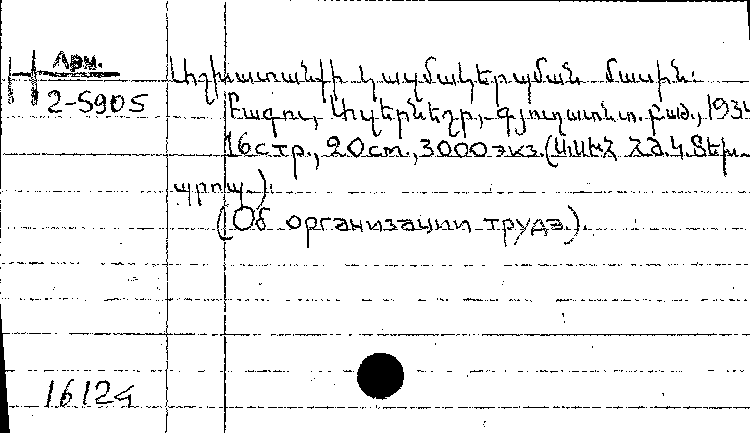 Арм.
2-5905
Աշխատանքի կազմակերպման մասին:
Բագու, Ադրնեշր, գյուղատնտ. բաժ., 193
16 стр., 20 cm., 3000 экз. (ԱԱԽՀ ՀԺԿ Տեխ.
պրոպ.).
(Об организации труда.).
1612